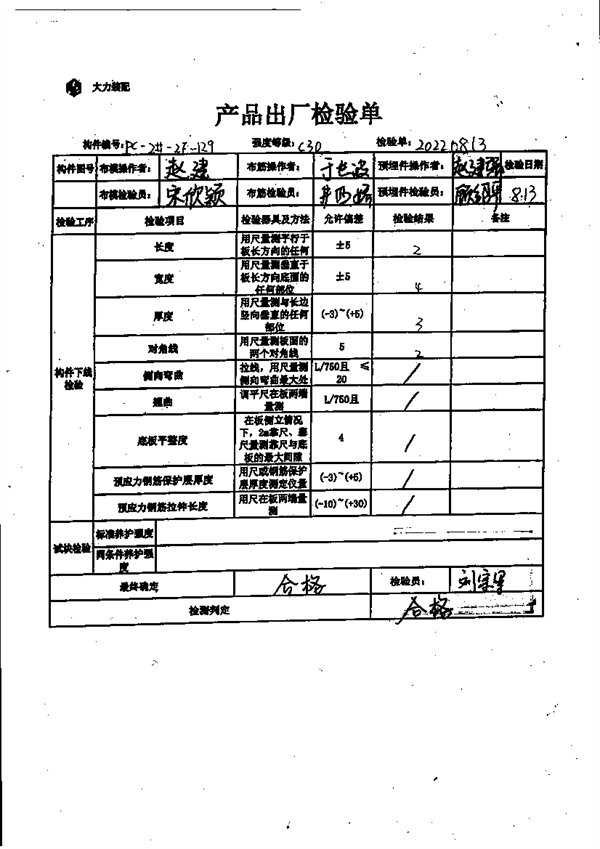 大力装配
产品出厂检验单
构件编号: PC-2#-2F-129 强度等级: C30 检验单: 20220813
构件图号 布模操作者: 赵建 布筋操作者: 预埋件操作者: 赵建强 检验日期
布模检验员: 宋欣颖 布筋检验员: 预埋件检验员: 8.13
检验工序 检验项目 检验器具及方法 允许偏差 检验结果 备注
构件下线检验
长度 用尺量测平行于板长方向的任何 ±5 2
宽度 用尺量测垂直于板长方向底面的任何部位 ±5 4
厚度 用尺量测与长边竖向垂直的任何部位 (-3)~(+5) 3
对角线 用尺量测板面的两个对角线 5 2
侧向弯曲 拉线，用尺量测侧向弯曲最大处 L/750且 ≤20 /
翘曲 调平尺在板两端量测 L/750且 /
底板平整度 在板侧立情况下，2m靠尺、塞尺量测靠尺与底板的最大间隙 4 /
预应力钢筋保护层厚度 用尺或钢筋保护层厚度测定仪量 (-3)~(+5) /
预应力钢筋拉伸长度 用尺在板两端量测 (-10)~(+30) /
试块检验 标准养护强度
同条件养护强度
最终确定 合格 检验员:
检测判定 合格